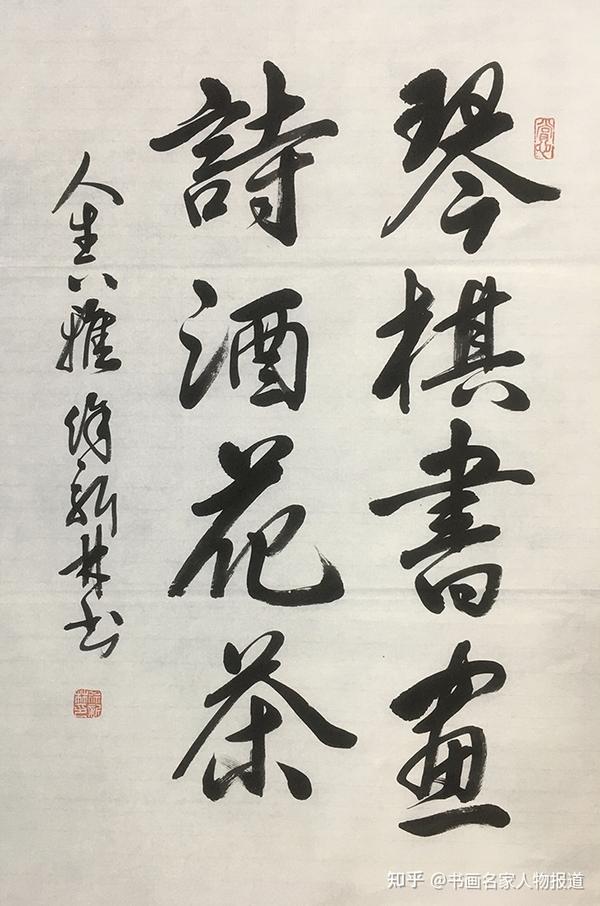 琴棋書畫
詩酒花茶
人生八雅 徐新林书
知乎 @书画名家人物报道